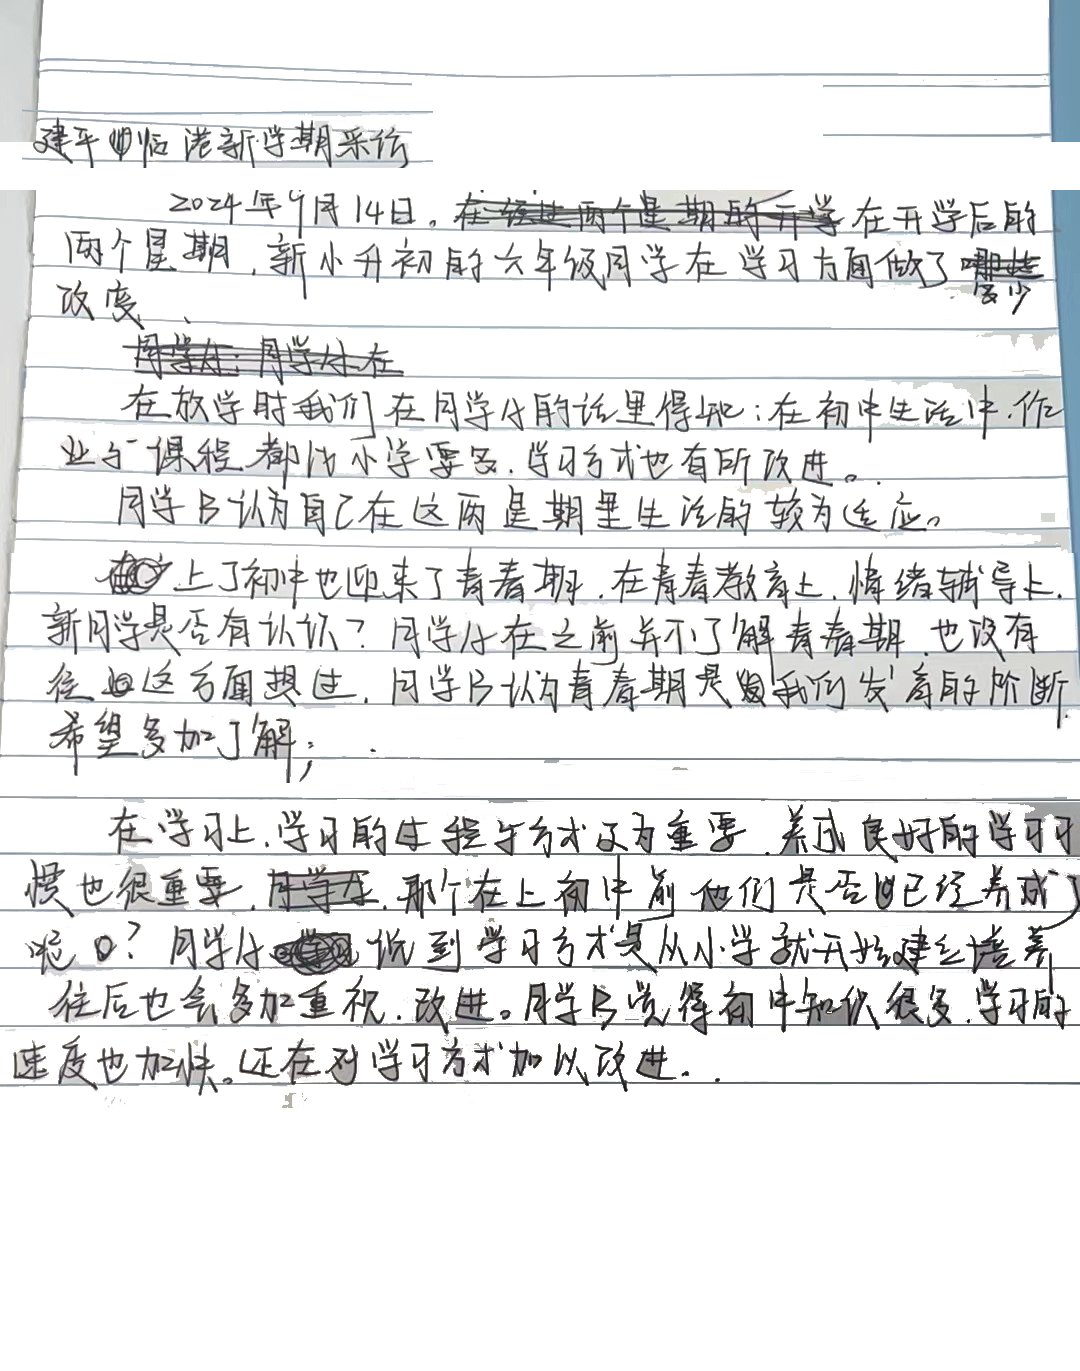 建平临港新学期采访
2024年9月14日。在开学后的
两个星期,新小升初的六年级同学在学习方面做了多少
改变、
在放学时我们在同学A的话里得知:在初中生活中.作
业与课程都比小学要多.学习方式也有所改进。
同学B认为自己在这两星期里生活的较为适应。
上了初中也迎来了青春期.在青春教育上.情绪辅导上.
新同学是否有认识?同学A在之前并不了解青春期.也没有
往这方面想过.同学B认为青春期是我们发育的阶断.
希望多加了解;
在学习上.学习的过程与方式尤为重要.养成良好的学习习
惯也很重要.那个在上初中前他们是否已经养成了
呢?同学A说到学习方式是从小学就开始建立培养
往后也会多加重视.改进。同学B觉得初中知识很多.学习的
速度也加快。还在对学习方式加以改进..